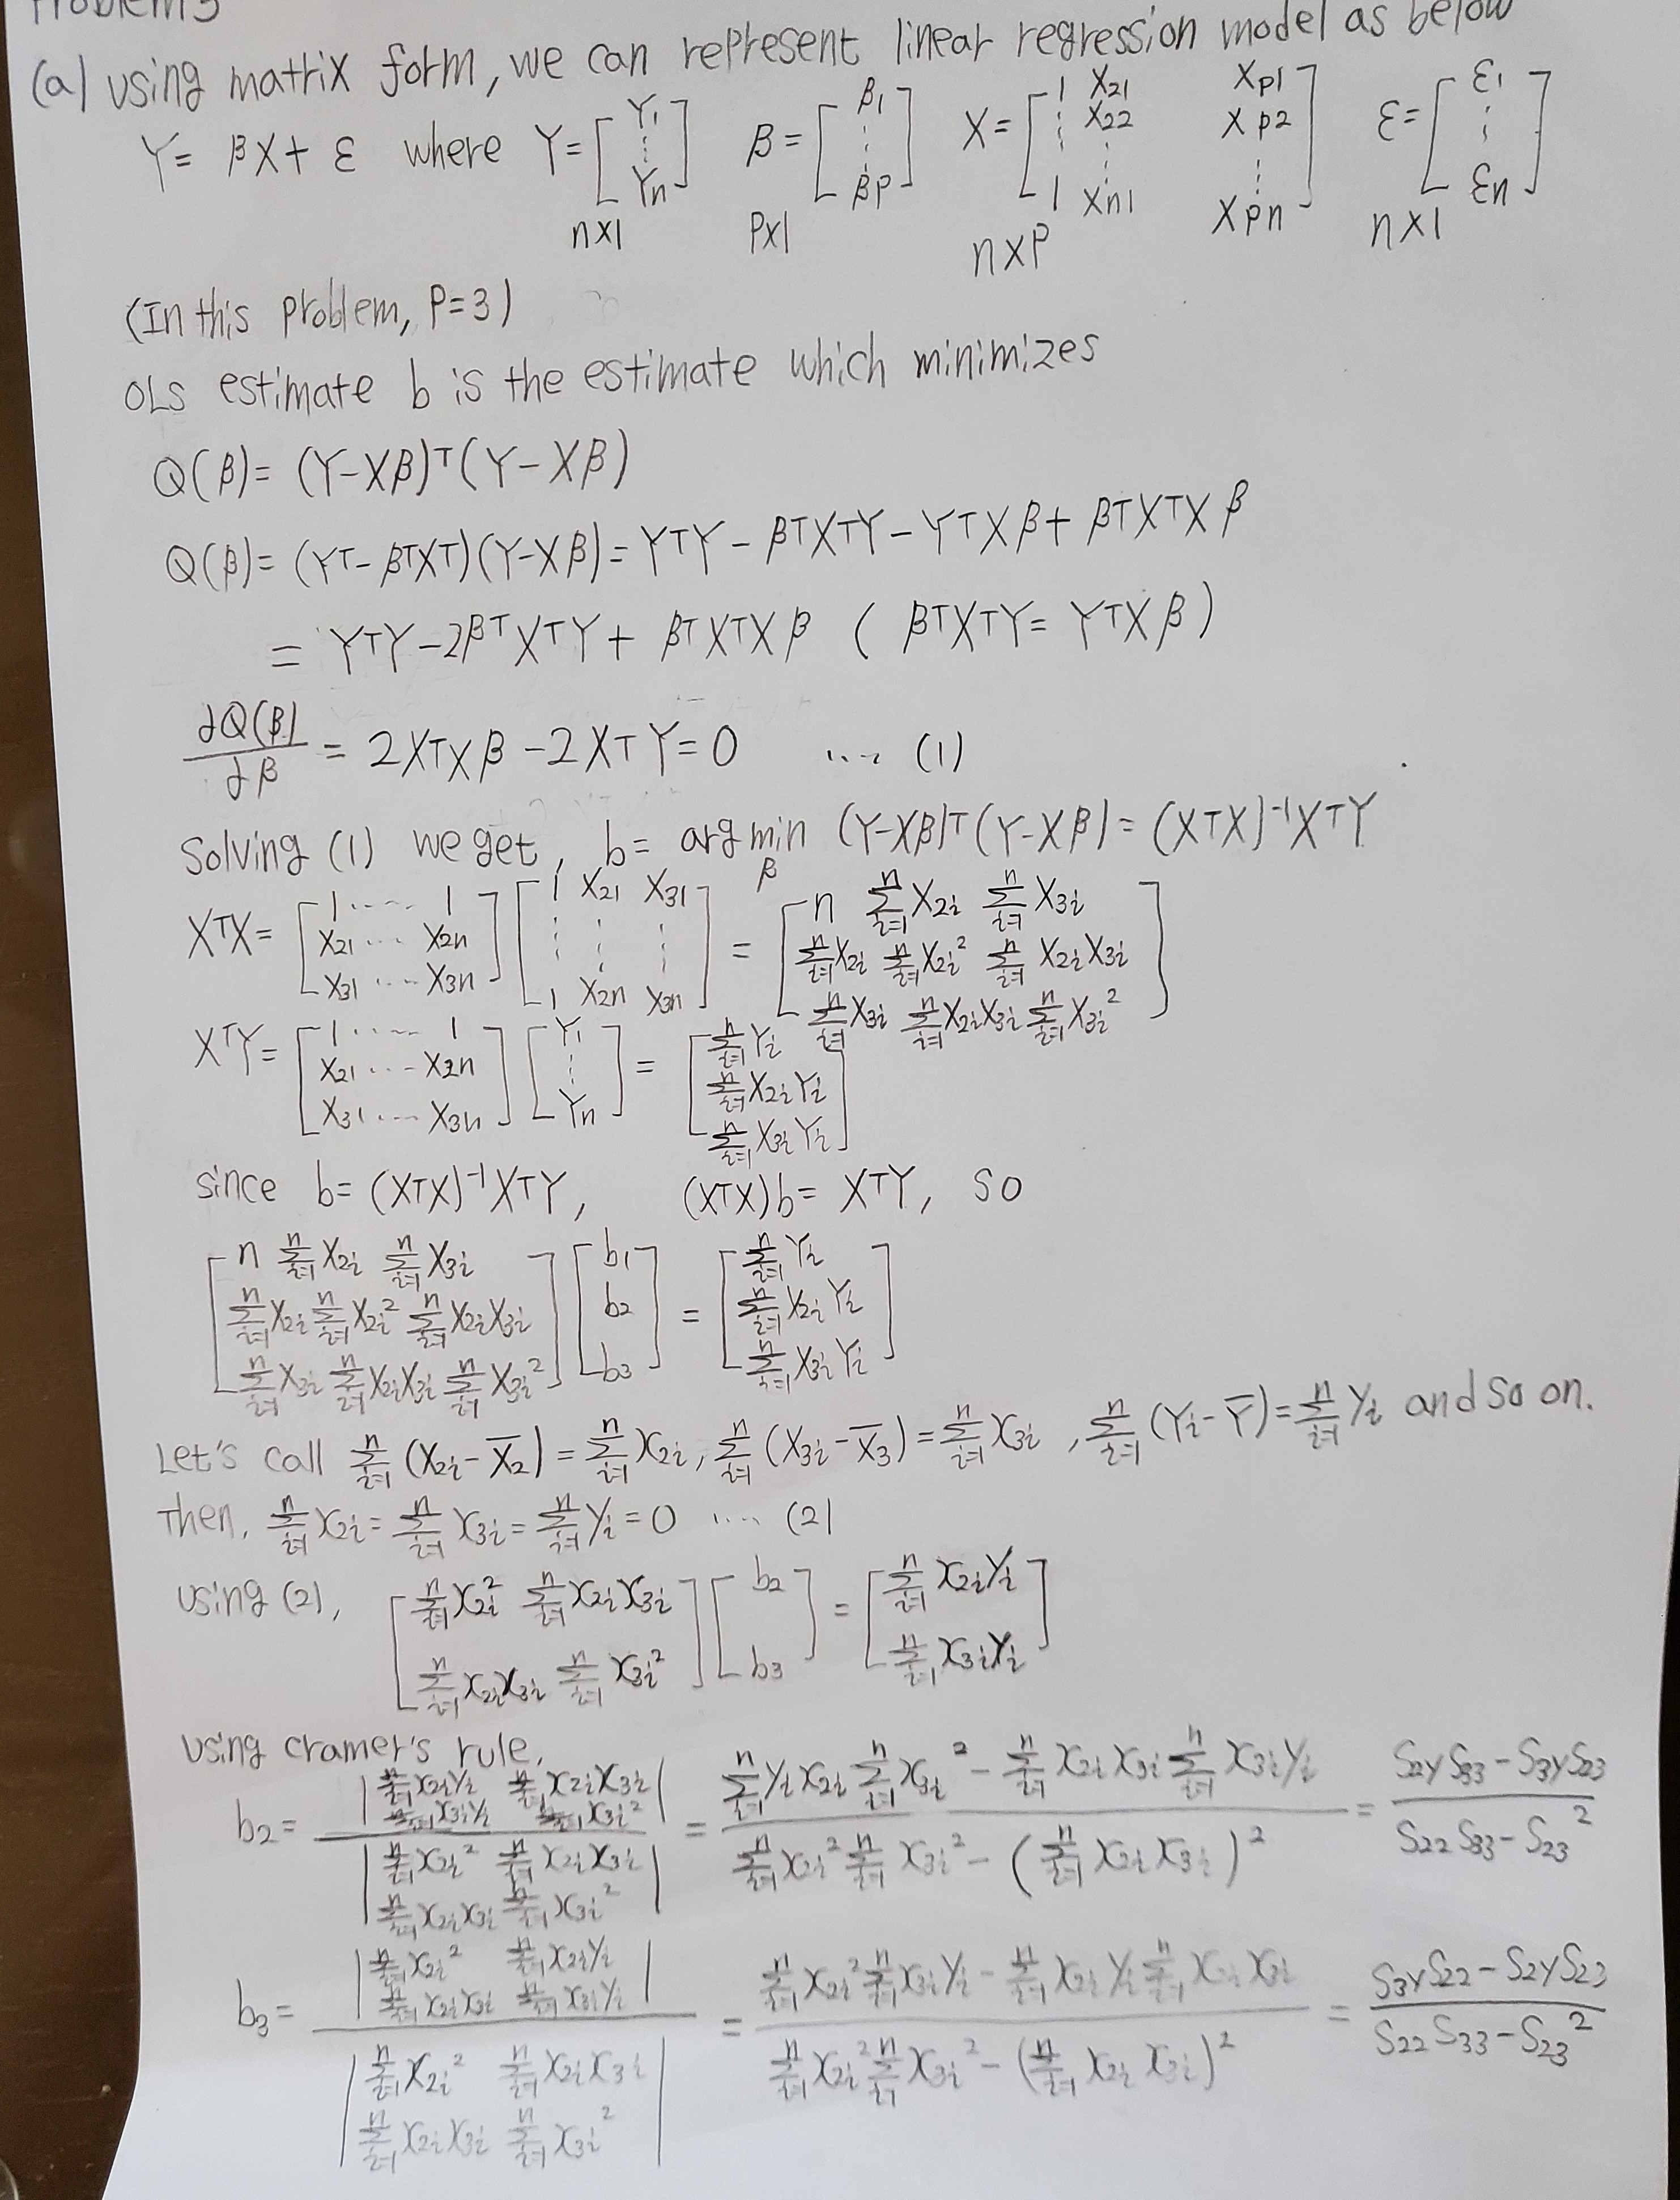 Problem 3
(a) using matrix form, we can represent linear regression model as below
Y = βX + ε where Y = [Y1 ⋮ Yn] n×1 β = [β1 ⋮ βp] p×1 X = [1 X21 Xp1 ⋮ X22 Xp2 ⋮ ⋮ 1 Xn1 Xpn] n×p ε = [ε1 ⋮ εn] n×1
(In this problem, P=3)
OLS estimate b is the estimate which minimizes
Q(β) = (Y-Xβ)ᵀ(Y-Xβ)
Q(β) = (Yᵀ-βᵀXᵀ)(Y-Xβ) = YᵀY - βᵀXᵀY - YᵀXβ + βᵀXᵀXβ
= YᵀY - 2βᵀXᵀY + βᵀXᵀXβ (βᵀXᵀY = YᵀXβ)
∂Q(β)/∂β = 2XᵀXβ - 2XᵀY = 0 .... (1)
Solving (1) we get, b = argmin_β (Y-Xβ)ᵀ(Y-Xβ) = (XᵀX)⁻¹XᵀY
XᵀX = [1 .... 1; X21 ... X2n; X31 ... X3n] [1 X21 X31; ⋮ ⋮ ⋮; 1 X2n X3n] = [n Σⁿᵢ₌₁X2i Σⁿᵢ₌₁X3i; Σⁿᵢ₌₁X2i Σⁿᵢ₌₁X2i² Σⁿᵢ₌₁X2iX3i; Σⁿᵢ₌₁X3i Σⁿᵢ₌₁X2iX3i Σⁿᵢ₌₁X3i²]
XᵀY = [1 .... 1; X21 ... X2n; X31 ... X3n] [Y1 ⋮ Yn] = [Σⁿᵢ₌₁Yi; Σⁿᵢ₌₁X2iYi; Σⁿᵢ₌₁X3iYi]
since b = (XᵀX)⁻¹XᵀY, (XᵀX)b = XᵀY, so
[n Σⁿᵢ₌₁X2i Σⁿᵢ₌₁X3i; Σⁿᵢ₌₁X2i Σⁿᵢ₌₁X2i² Σⁿᵢ₌₁X2iX3i; Σⁿᵢ₌₁X3i Σⁿᵢ₌₁X2iX3i Σⁿᵢ₌₁X3i²] [b1; b2; b3] = [Σⁿᵢ₌₁Yi; Σⁿᵢ₌₁X2iYi; Σⁿᵢ₌₁X3iYi]
Let's call Σⁿᵢ₌₁(X2i-X̄2) = Σⁿᵢ₌₁x2i, Σⁿᵢ₌₁(X3i-X̄3) = Σⁿᵢ₌₁x3i, Σⁿᵢ₌₁(Yi-Ȳ) = Σⁿᵢ₌₁yi and so on.
Then, Σⁿᵢ₌₁x2i = Σⁿᵢ₌₁x3i = Σⁿᵢ₌₁yi = 0 .... (2)
using (2), [Σⁿᵢ₌₁x2i² Σⁿᵢ₌₁x2ix3i; Σⁿᵢ₌₁x2ix3i Σⁿᵢ₌₁x3i²] [b2; b3] = [Σⁿᵢ₌₁x2iyi; Σⁿᵢ₌₁x3iyi]
using cramer's rule,
b2 = |Σⁿᵢ₌₁x2iyi Σⁿᵢ₌₁x2ix3i; Σⁿᵢ₌₁x3iyi Σⁿᵢ₌₁x3i²| / |Σⁿᵢ₌₁x2i² Σⁿᵢ₌₁x2ix3i; Σⁿᵢ₌₁x2ix3i Σⁿᵢ₌₁x3i²| = (Σⁿᵢ₌₁yix2i Σⁿᵢ₌₁x3i² - Σⁿᵢ₌₁x2ix3i Σⁿᵢ₌₁x3iyi) / (Σⁿᵢ₌₁x2i² Σⁿᵢ₌₁x3i² - (Σⁿᵢ₌₁x2ix3i)²) = (S2YS33 - S3YS23) / (S22S33 - S23²)
b3 = |Σⁿᵢ₌₁x2i² Σⁿᵢ₌₁x2iyi; Σⁿᵢ₌₁x2ix3i Σⁿᵢ₌₁x3iyi| / |Σⁿᵢ₌₁x2i² Σⁿᵢ₌₁x2ix3i; Σⁿᵢ₌₁x2ix3i Σⁿᵢ₌₁x3i²| = (Σⁿᵢ₌₁x2i² Σⁿᵢ₌₁x3iyi - Σⁿᵢ₌₁x2iyi Σⁿᵢ₌₁x2ix3i) / (Σⁿᵢ₌₁x2i² Σⁿᵢ₌₁x3i² - (Σⁿᵢ₌₁x2ix3i)²) = (S3YS22 - S2YS23) / (S22S33 - S23²)